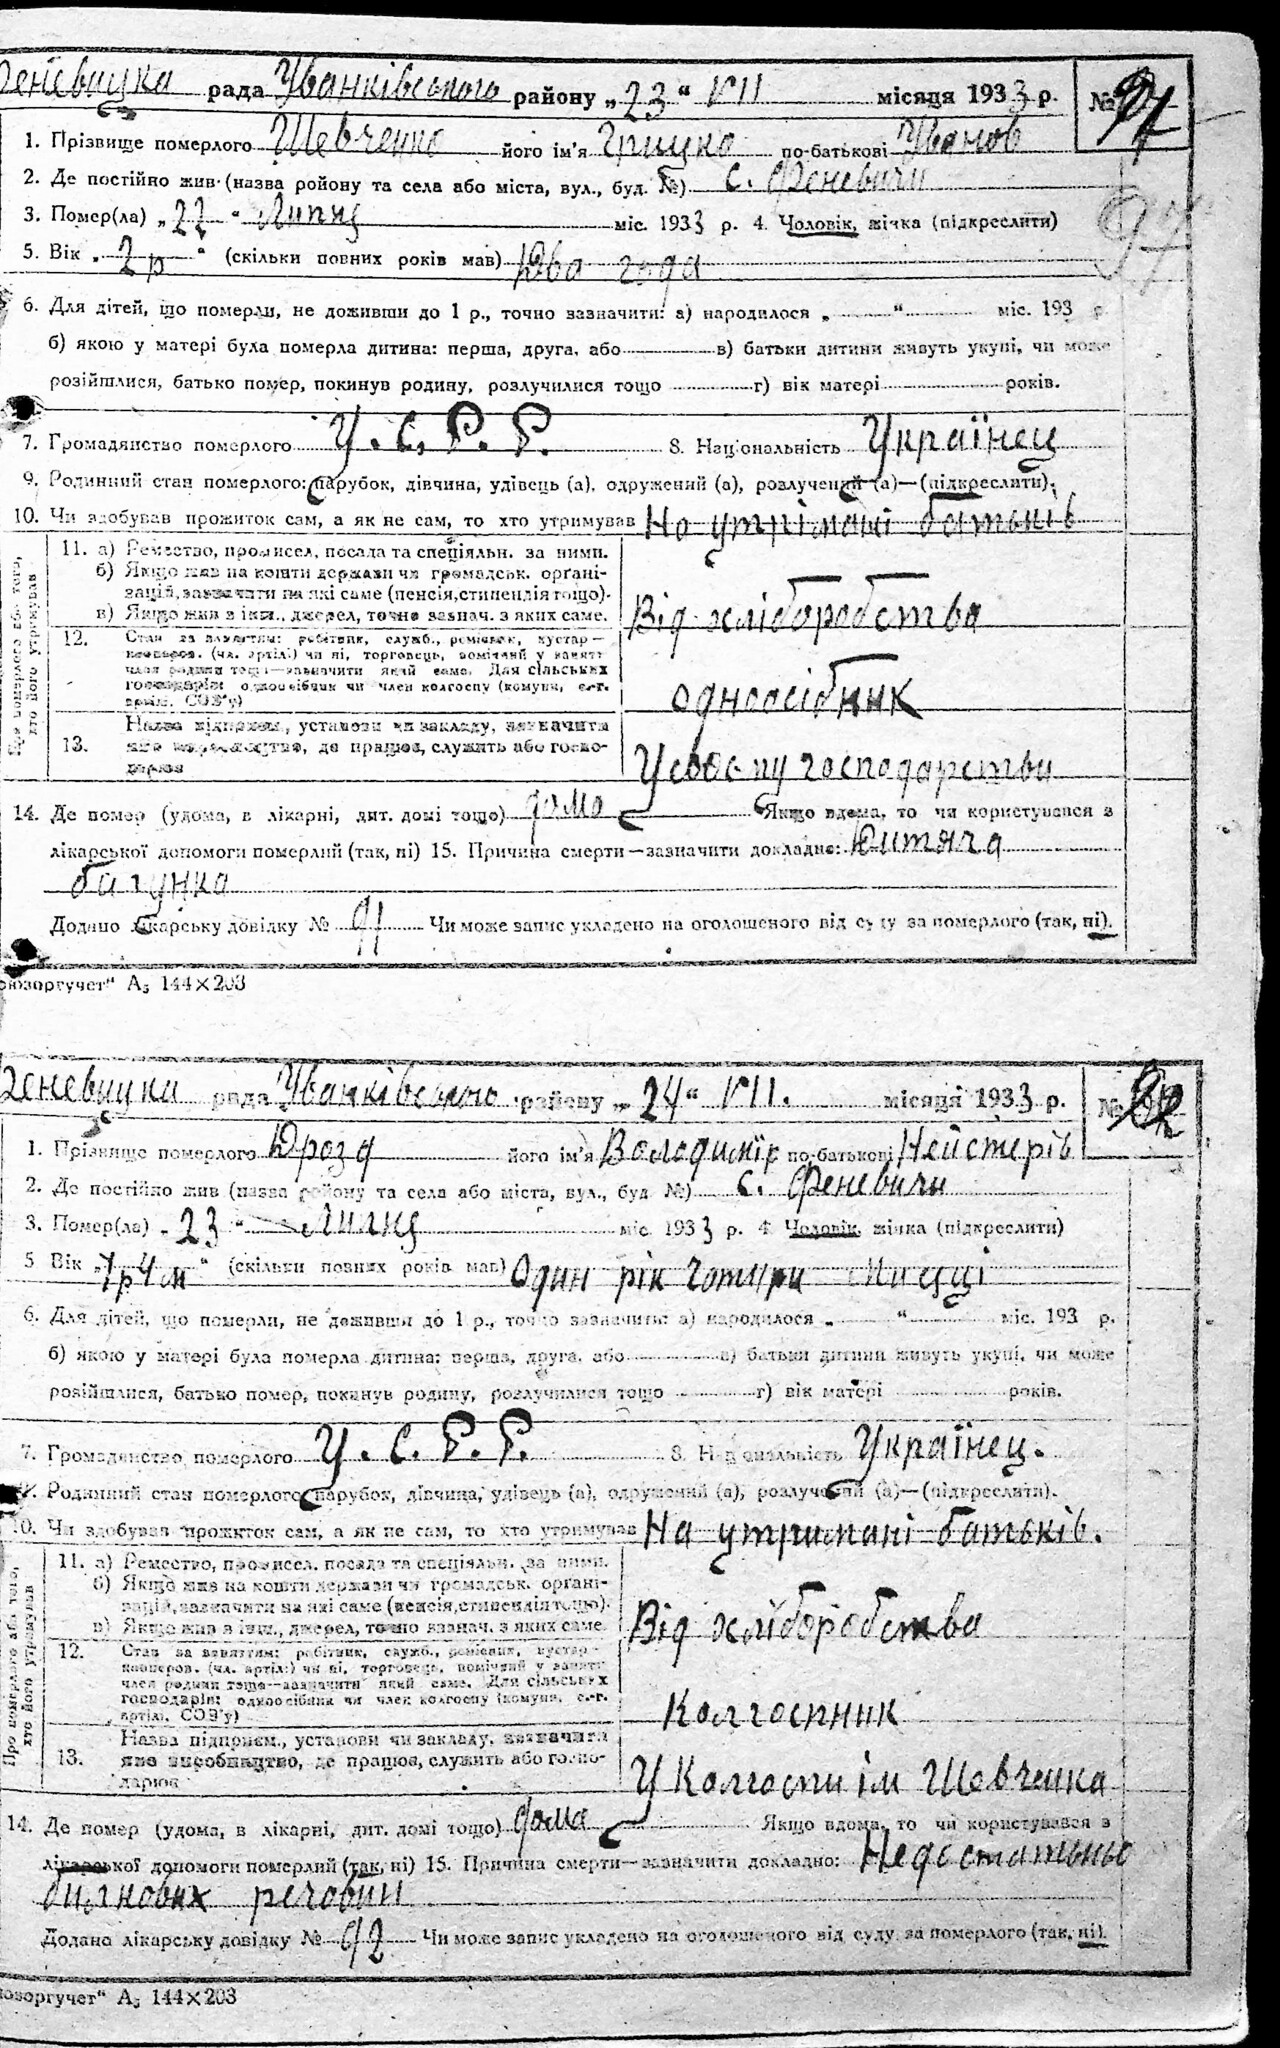 Феневицка рада Іванківського району „23“ VII місяця 1933 р. № 91
1. Прізвище померлого Шевченко його ім'я Грицко по-батькові Іванов
2. Де постійно жив (назва ройону та села або міста, вул., буд. №) с. Феневичи
3. Помер(ла) „22“ Липня міс. 1933 р. 4. Чоловік, жінка (підкреслити)
97
5. Вік „2 р“ (скільки повних років мав) Два года
6. Для дітей, що померли, не доживши до 1 р., точно зазначити: а) народилося „ “ міс. 193 р.
б) якою у матері була померла дитина: перша, друга, або в) батьки дитини живуть укупі, чи може
розійшлися, батько помер, покинув родину, розлучилися тощо г) вік матері років.
7. Громадянство померлого У. С. Р. Р. 8. Національність Українец
9. Родинний стан померлого: парубок, дівчина, удівець (а), одружений (а), розлучений (а)—(підкреслити).
10. Чи здобував прожиток сам, а як не сам, то хто утримував На утрімані батьків
Про померлого або того, хто його утримував
11. а) Ремество, промисел, посада та спеціяльн. за ними.
б) Якщо жив на кошти держави чи громадськ. органі-
зацій, зазначити на які саме (пенсія, стипендія тощо).
в) Якщо жив з інш., джерел, точно зазнач. з яких саме.
Від хліборобства
12. Стан за заняттям: робітник, служб., ремісник, кустар—
кооперов. (чл. артілі) чи ні, торговець, помічний у занятт
член родини тощо—зазначити який саме. Для сільських
господарів: одноосібник чи член колгоспу (комуни, с.-г.
артілі, СОЗ'у)
одноосібник
13. Назва підприєм., установи чи закладу, зазначити
яке виробництво, де працює, служить або госпо-
дарює
У своєму господарстви
14. Де помер (удома, в лікарні, дит. домі тощо) дома Якщо вдома, то чи користувався з
лікарської допомоги померлий (так, ні) 15. Причина смерти—зазначити докладно: Дитяча
бигунка
Додано лікарську довідку № 91 Чи може запис укладено на оголошеного від суду за померлого (так, ні).
оюзоргучет“ А₅ 144×203
Феневицка рада Іванківського району „24“ VII. місяці 1933 р. № 92
1. Прізвище померлого Дрозд його ім'я Володимїр по-батькові Нейстерів
2. Де постійно жив (назва ройону та села або міста, вул., буд №) с. Феневичи
3. Помер(ла) „23“ Липня міс. 1933 р. 4 Чоловік, жінка (підкреслити)
5 Вік „1р 4м“ (скільки повних років мав) Один рік чотири мисяці
6. Для дітей, що померли, не доживши до 1 р., точно зазначить: а) народилося „ “ міс. 193 р.
б) якою у матері була померла дитина: перша, друга, або в) батьки дитини живуть укупі, чи може
розійшлися, батько помер, покинув родину, розлучилися тощо г) вік матері років.
7. Громадянство померлого У. С. Р. Р. 8. Національність Українец.
9. Родинний стан померлого парубок, дівчина, удівець (а), одружений (а), розлучений (а)—(підкреслити).
10. Чи здобував прожиток сам, а як не сам, то хто утримував На утримані батьків.
Про померлого або того, хто його утримував
11. а) Ремество, промисел, посада та спеціяльн. за ними.
б) Якщо жив на кошти держави чи громадськ. органі-
зацій, зазначити на які саме (пенсія, стипендія тощо).
в) Якщо жив з інш., джерел, точно зазнач. з яких саме.
Від хліборобства
12. Стан за заняттям: робітник, служб., ремісник, кустар—
кооперов. (чл. артілі) чи ні, торговець, помічний у занятті
член родини тощо—зазначити який саме. Для сільських
господарів: одноосібник чи член колгоспу (комуни, с.-г.
артілі, СОЗ'у)
Колгоспник
13. Назва підприєм., установи чи закладу, зазначити
яке виробництво, де працює, служить або госпо-
дарює
У Колгоспи ім Шевченка
14. Де помер (удома, в лікарні, дит. домі тощо) дома Якщо вдома, то чи користувався з
лікарської допомоги померлий (так, ні) 15. Причина смерти—зазначити докладно: Недостатьньо
билковых речовин
Додано лікарську довідку № 92 Чи може запис укладено на оголошеного від суду за померлого (так, ні).
юзоргучет“ А₅ 144×203